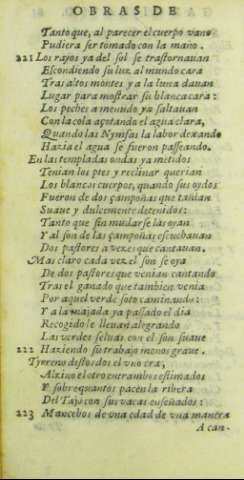 OBRAS DE
Tanto que, al parecer el cuerpo vano
Pudiera ser tomado con la mano.
221 Los rayos ya del sol se trastornauan
Escondiendo su luz, al mundo cara
Tras altos montes y a la luna dauan
Lugar para mostrar su blanca cara:
Los peches a menudo ya saltauan
Con la cola açotando el agua clara,
Quando las Nymfas la labor dexando
Hazia el agua se fueron passeando.
En las templadas ondas ya metidos
Tenian los pies y reclinar querian
Los blancos cuerpos, quando sus oydos
Fueron de dos çampoñas que tañian
Suaue y dulcemente detenidos:
Tanto que sin mudarse las oyan
Y al son de las çampoñas escuchauan
Dos pastores a vezes que cantauan.
Mas claro cada vez el son se oya
De dos pastores que venian cantando
Tras el ganado que tambien venia
Por aquel verde soto caminando:
Y a la majada ya passado el dia
Recogido le lleuan alegrando
Las verdes seluas con el son suaue
222 Haziendo su trabajo menos graue.
Tyrreno destos dos el vno era,
Alzino el otro entrambos estimados
Y sobre quantos pacen la ribera
Del Tajo con sus vacas enseñados:
223 Mancebos de vna edad de vna manera
A can-